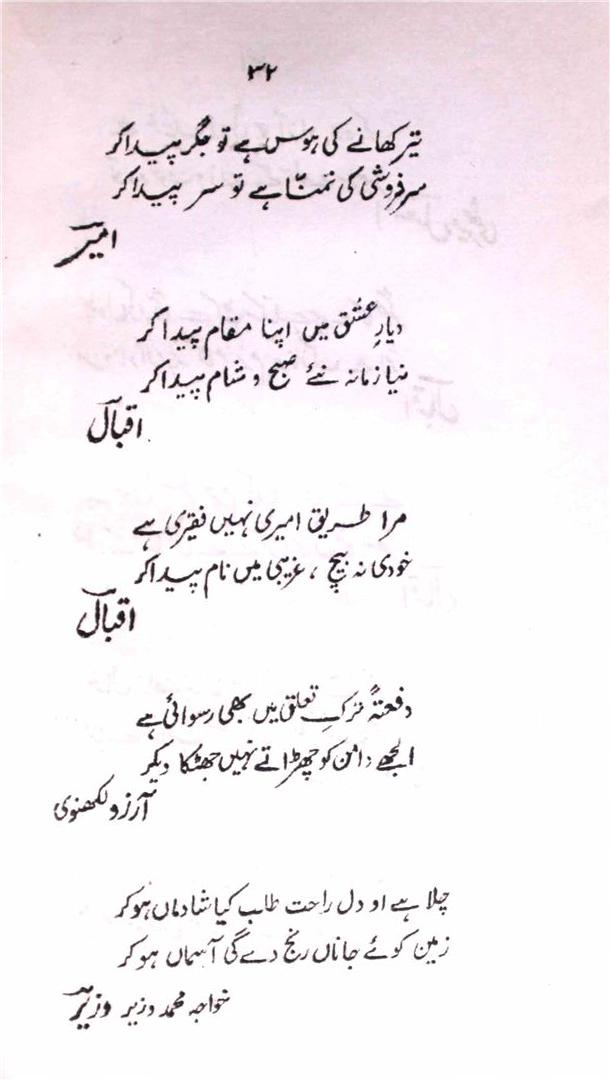 ۳۲
تیر کھانے کی ہوس ہے تو جگر پیدا کر
سرفروشی کی تمنّا ہے تو سر پیدا کر
امیرؔ
دیارِ عشق میں اپنا مقام پیدا کر
نیا زمانہ نئے صبح و شام پیدا کر
اقبالؔ
مرا طریق امیری نہیں فقیری ہے
خودی نہ بیچ ، غریبی میں نام پیدا کر
اقبالؔ
دفعتہً ترکِ تعلق میں بھی رسوائی ہے
الجھے دامن کو چھڑاتے نہیں جھٹکا دیکر
آرزو لکھنوی
چلا ہے او دل راحت طلب کیا شادماں ہو کر
زمین کوئے جاناں رنج دے گی آسماں ہو کر
خواجہ محمد وزیر وزیرؔ